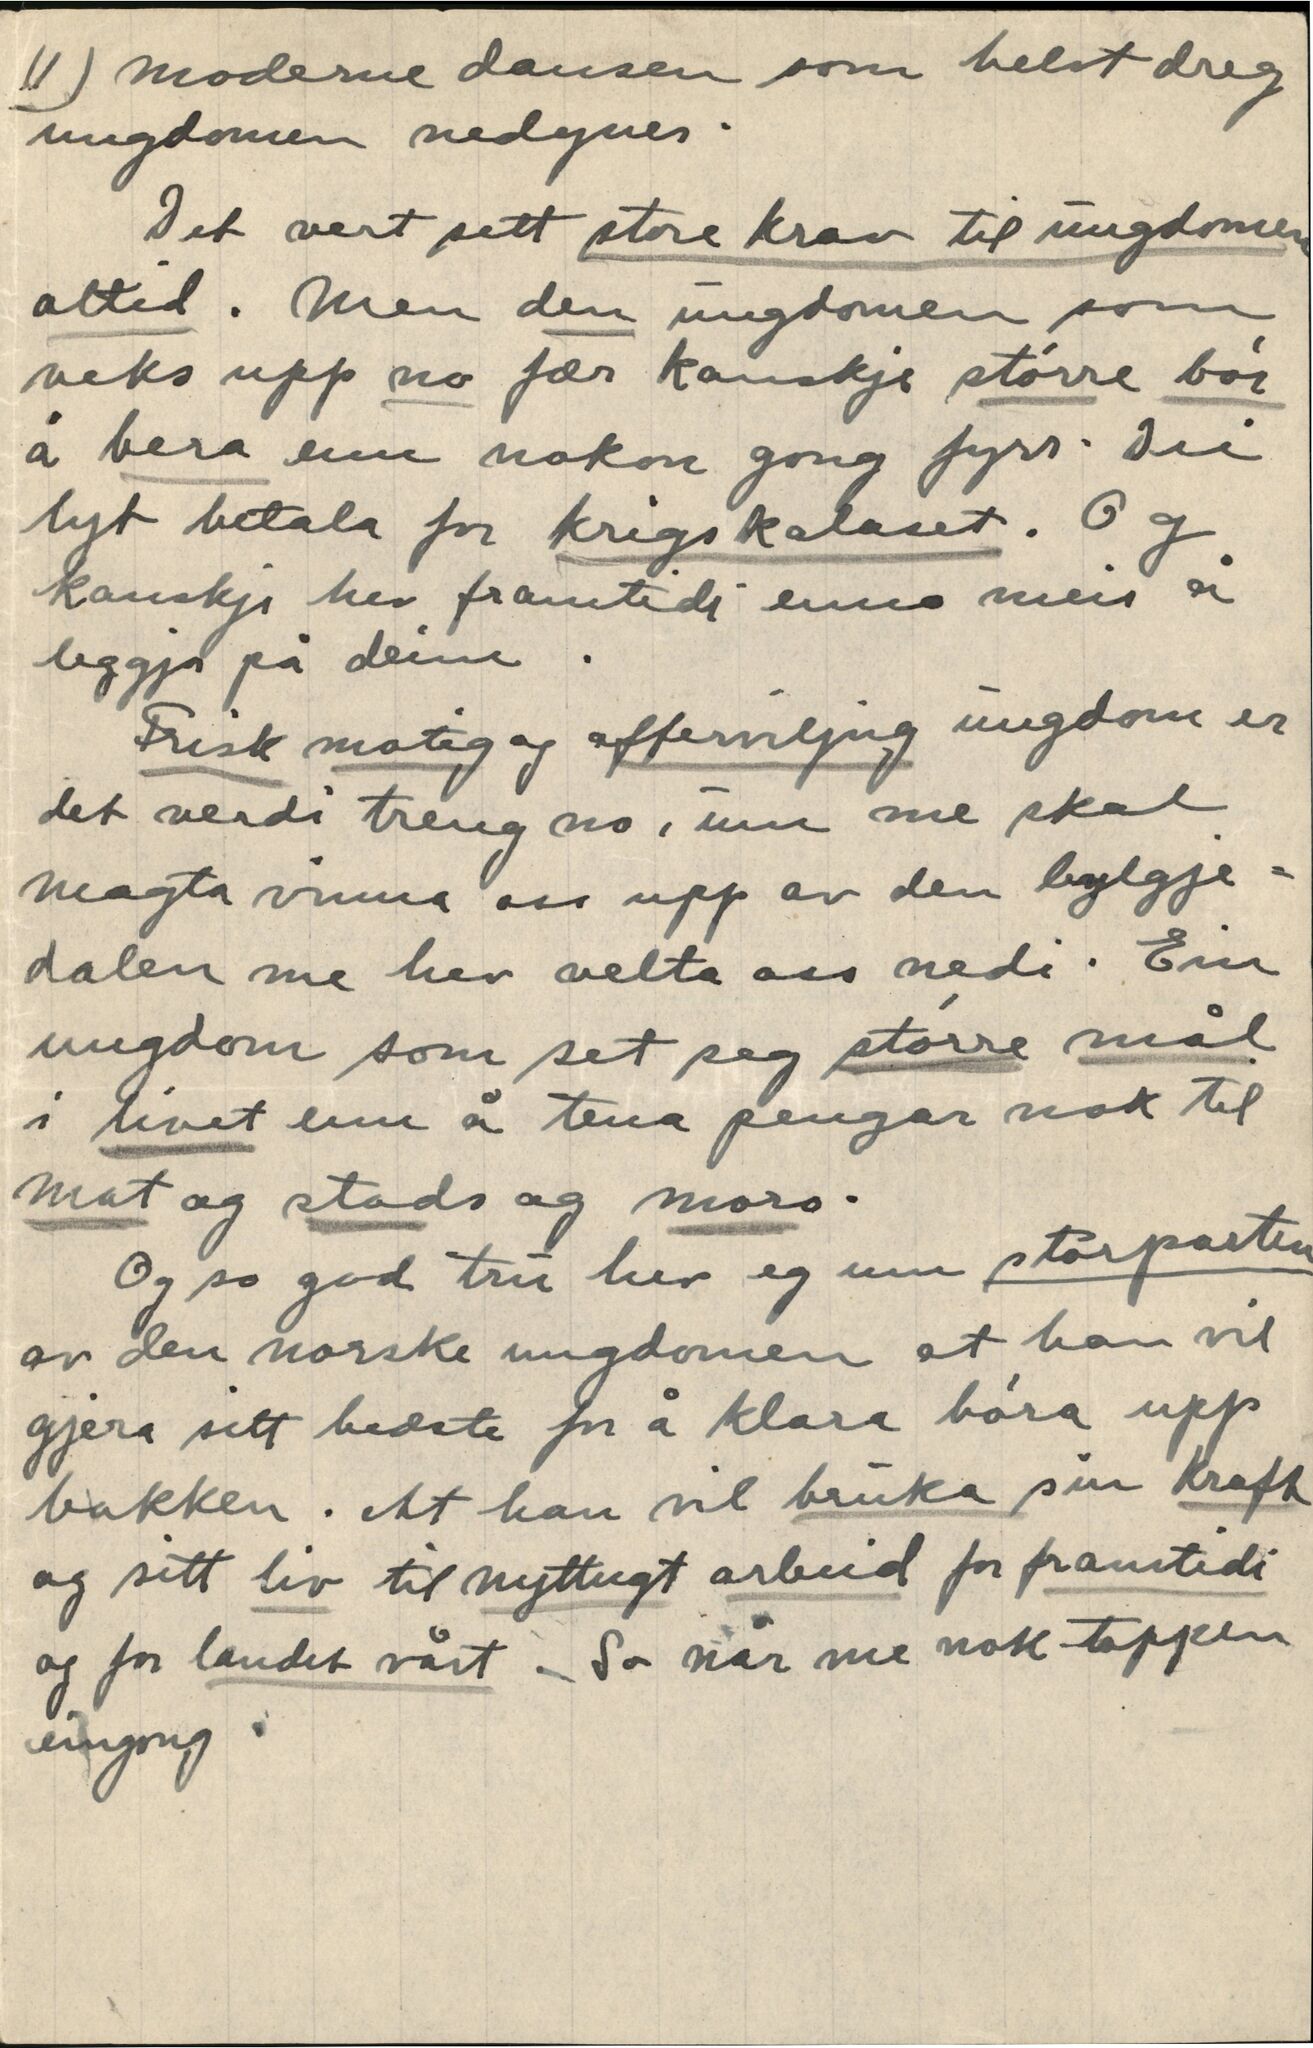 11) moderne dansen som helst dreg
ungdomen nedyver.
Det vert sett store krav til ungdomen
alltid. Men den ungdomen som
veks upp no fær kanskje større bør
å bera enn nokon gong fyrr. Dei
lyt betala for krigskalaset. Og
kanskje hev framtidi enno meir å
leggja på deim.
Frisk modig og offerviljug ungdom er
det verdi treng no, um me skal
magta vinna oss upp av den bylgje-
dalen me hev velta oss nedi. Ein
ungdom som set seg større mål
i livet enn å tena pengar nok til
mat og stads og moro.
Og so god tru hev eg um storparten
av den norske ungdomen at han vil
gjera sitt bedste for å klara bóra upp
bakken. At han vil bruka sin kraft
og sitt liv til nyttugt arbeid for framtidi
og for landet vårt. So når me nok toppen
eingong.